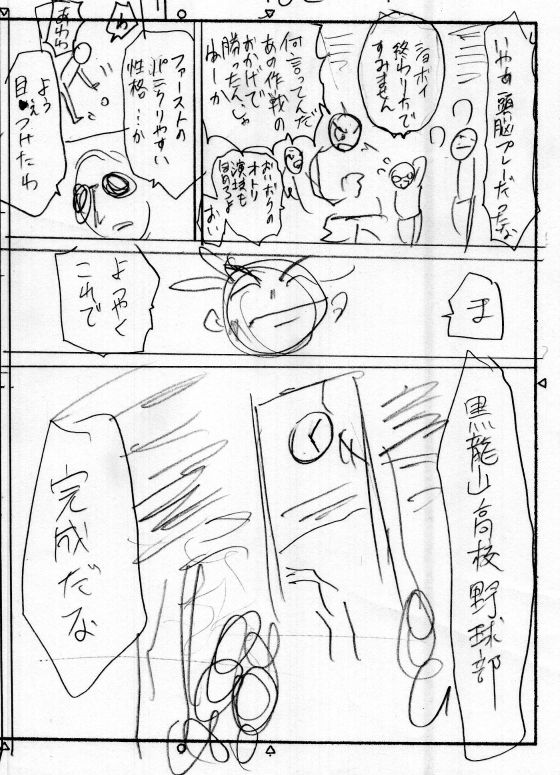 いやぁ頭脳プレーだったな
ショボイ
終わりかたで
すみません
何言ってんだ
あの作戦の
おかげで
勝ったんじゃ
ねーか
おいボクの
オトリ
演技も
おい
ファーストの
パニクりやすい
性格…か
わ
あわわ
よう
目ぇつけたわ
ま
ようやく
これで
黒龍山高校野球部
完成だな